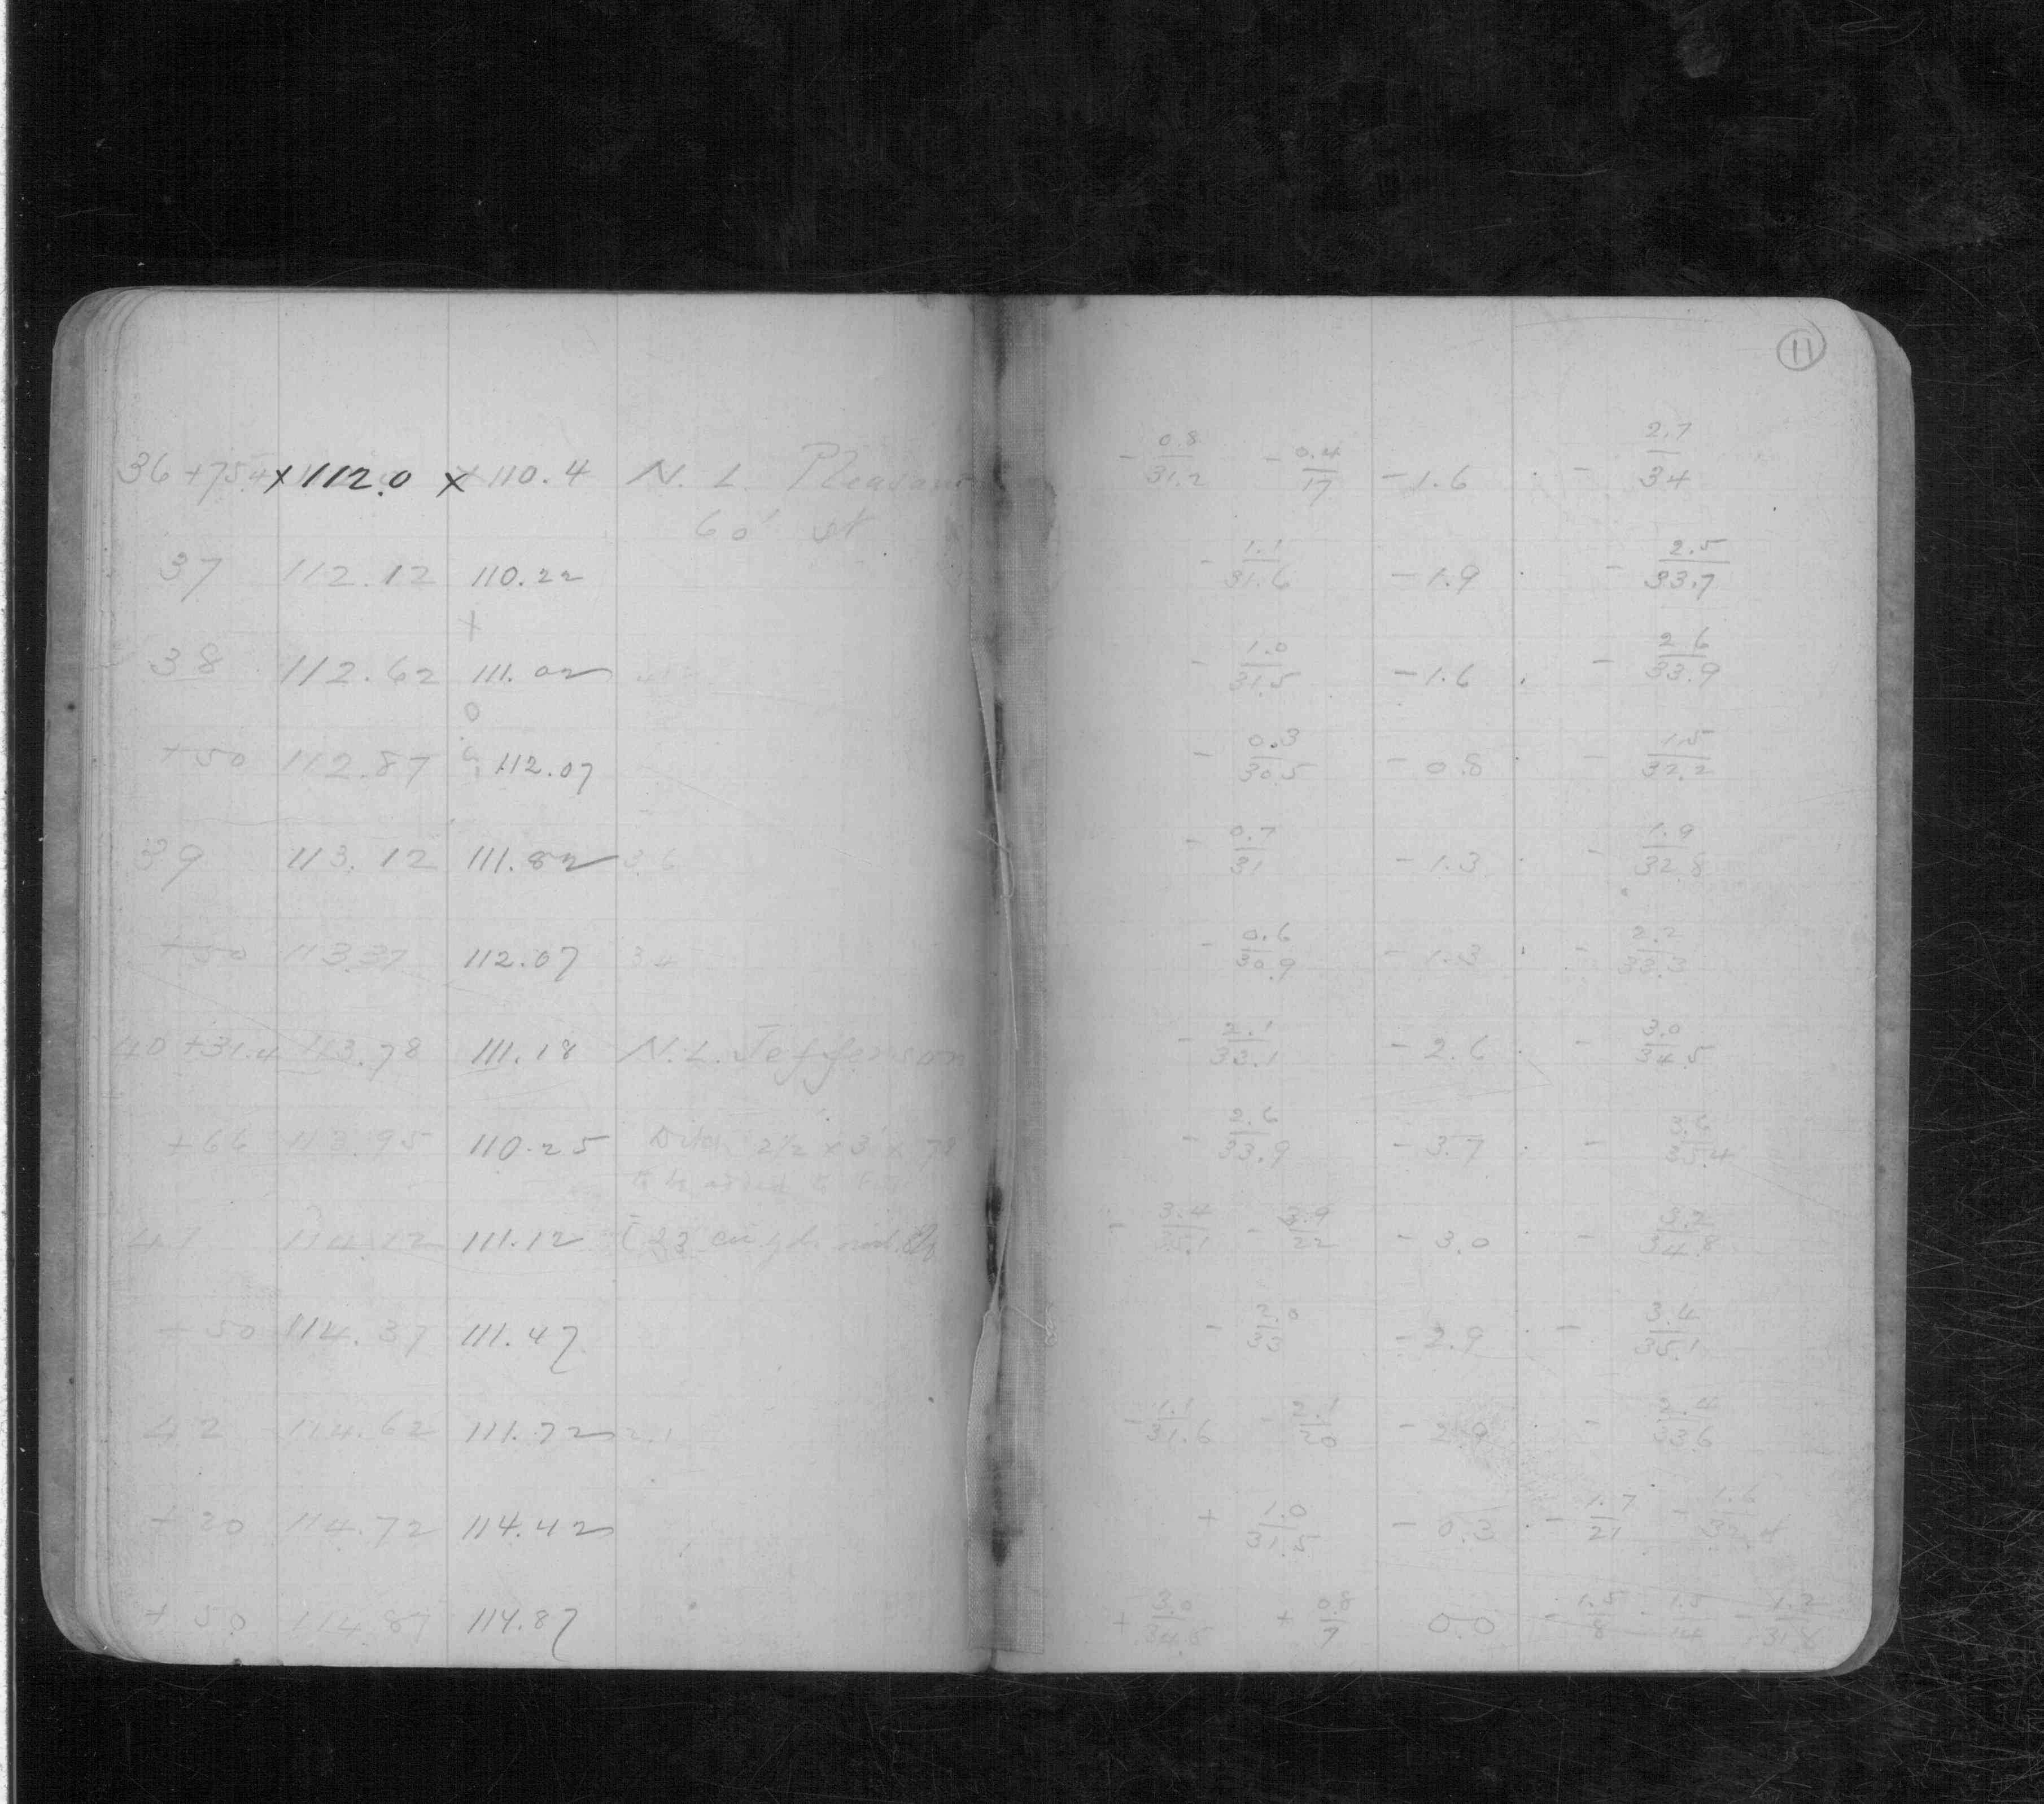 11
36 +75.4 x 112.0 x 110.4 N. L. Pleasant - 0.8/31.2 - 0.4/17 - 1.6 - 2.7/34
60' st
37 112.12 110.22 - 1.1/31.6 - 1.9 - 2.5/33.7
+
38 112.62 111.02 - 1.0/31.5 - 1.6 - 2.6/33.9
0
+50 112.87 112.07 - 0.3/30.5 - 0.8 - 1.5/32.2
39 113.12 111.82 3.6 - 0.7/31 - 1.3 - 1.9/32.8
+50 113.37 112.07 34 - 0.6/30.9 - 1.3 - 2.2/33.3
40 +31.4 113.78 111.18 N. L. Jefferson - 2.1/33.1 - 2.6 - 3.0/34.5
+66 113.95 110.25 Ditch 2 1/2 x 3 x 78 - 2.6/33.9 - 3.7 - 3.6/35.4
to be added to
41 114.12 111.12 (23 cu yds - 3.4/35.1 - 3.9/22 - 3.0 - 3.2/34.8
+50 114.37 111.47 - 2.0/33 - 2.9 - 3.4/35.1
42 114.62 111.72 2.1 - 1.1/31.6 - 2.1/20 - 2.9 - 2.4/33.6
+20 114.72 114.42 + 1.0/31.5 - 0.3 - 1.7/21 - 1.6/32.4
+50 114.87 114.87 + 3.0/34.5 + 0.8/7 0.0 - 1.5/8 - 1.5/14 - 1.2/31.8